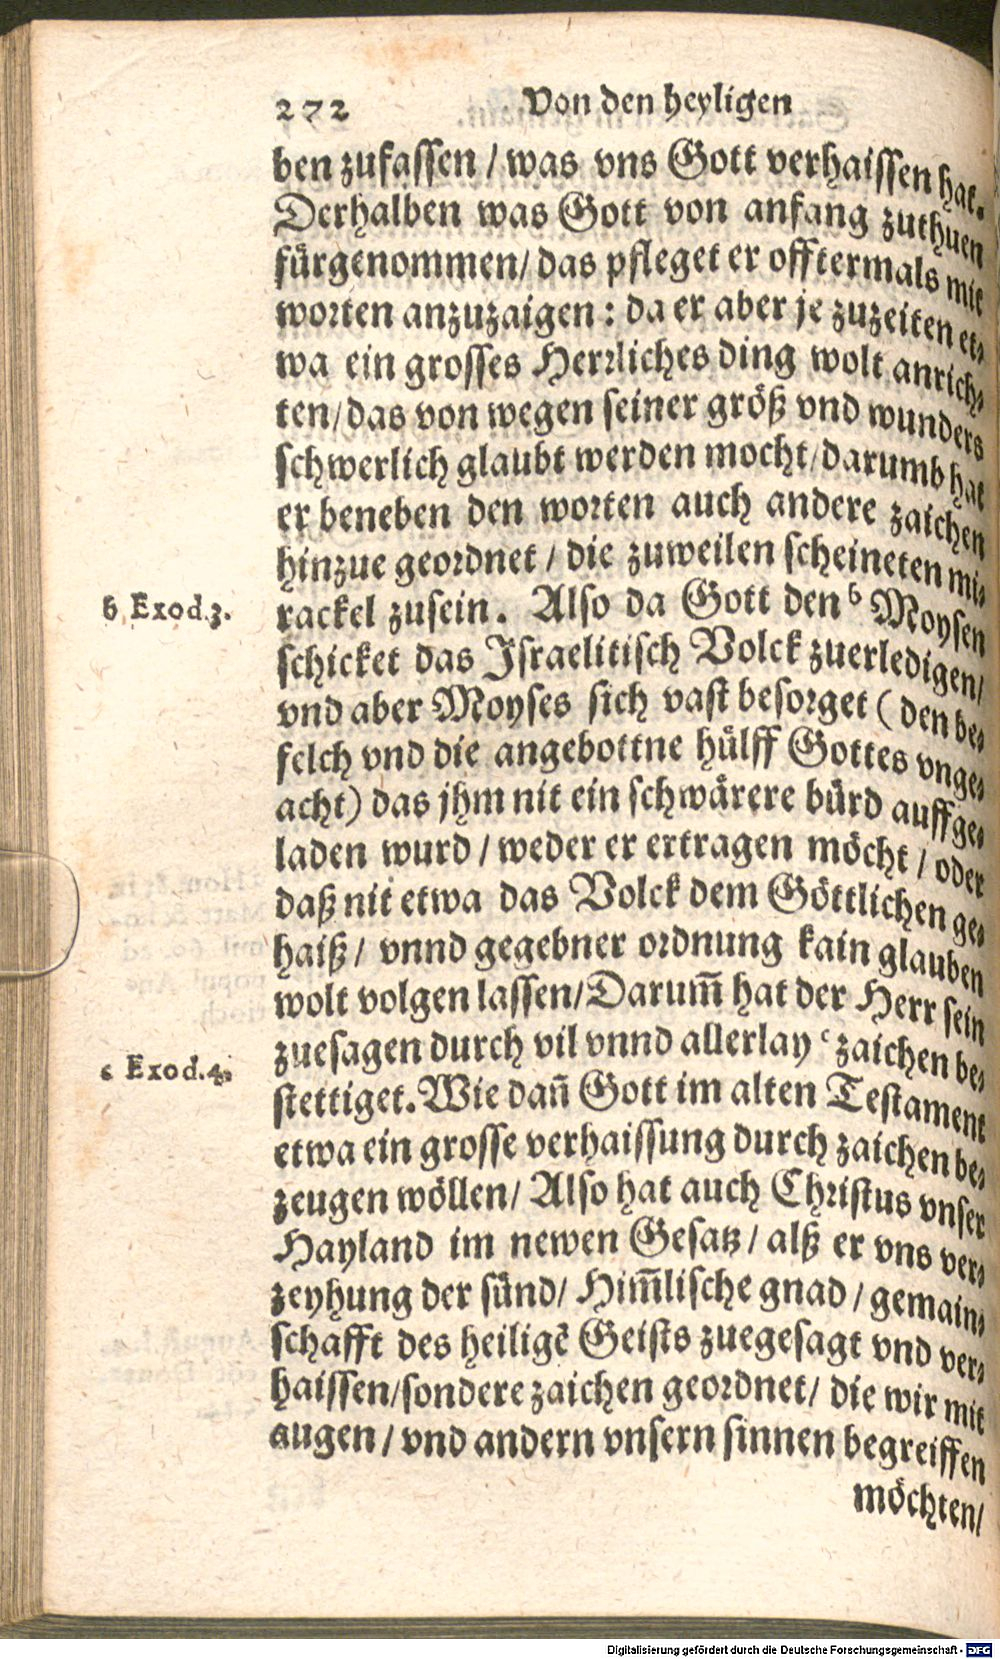 272 Von den heyligen
ben zufassen / was vns Gott verhaissen hat.
Derhalben was Gott von anfang zuthuen
fürgenommen/ das pfleget er offtermals mit
worten anzuzaigen : da er aber je zuzeiten et⸗
wa ein grosses Herrliches ding wolt anrich⸗
ten/das von wegen seiner größ vnd wunders
schwerlich glaubt werden mocht/darumb hat
er beneben den worten auch andere zaichen
hinzue geordnet / die zuweilen scheineten mi⸗
b Exod.3.
rackel zusein. Also da Gott den ᵇ Moysen
schicket das Israelitisch Volck zuerledigen/
vnd aber Moyses sich vast besorget ( den be⸗
felch vnd die angebottne hülff Gottes vnge⸗
acht) das jhm nit ein schwärere bürd auffge⸗
laden wurd / weder er ertragen möcht / oder
daß nit etwa das Volck dem Göttlichen ge⸗
haiß / vnnd gegebner ordnung kain glauben
wolt volgen lassen/Darum̃ hat der Herr sein
c Exod.4.
zuesagen durch vil vnnd allerlay ᶜ zaichen be⸗
stettiget. Wie dañ Gott im alten Testament
etwa ein grosse verhaissung durch zaichen be⸗
zeugen wöllen/ Also hat auch Christus vnser
Hayland im newen Gesatz / alß er vns ver⸗
zeyhung der sünd/ Him̃lische gnad / gemain⸗
schafft des heiligẽ Geists zuegesagt vnd ver⸗
haissen/sondere zaichen geordnet/ die wir mit
augen / vnd andern vnsern sinnen begreiffen
möchten/
Digitalisierung gefördert durch die Deutsche Forschungsgemeinschaft - DFG